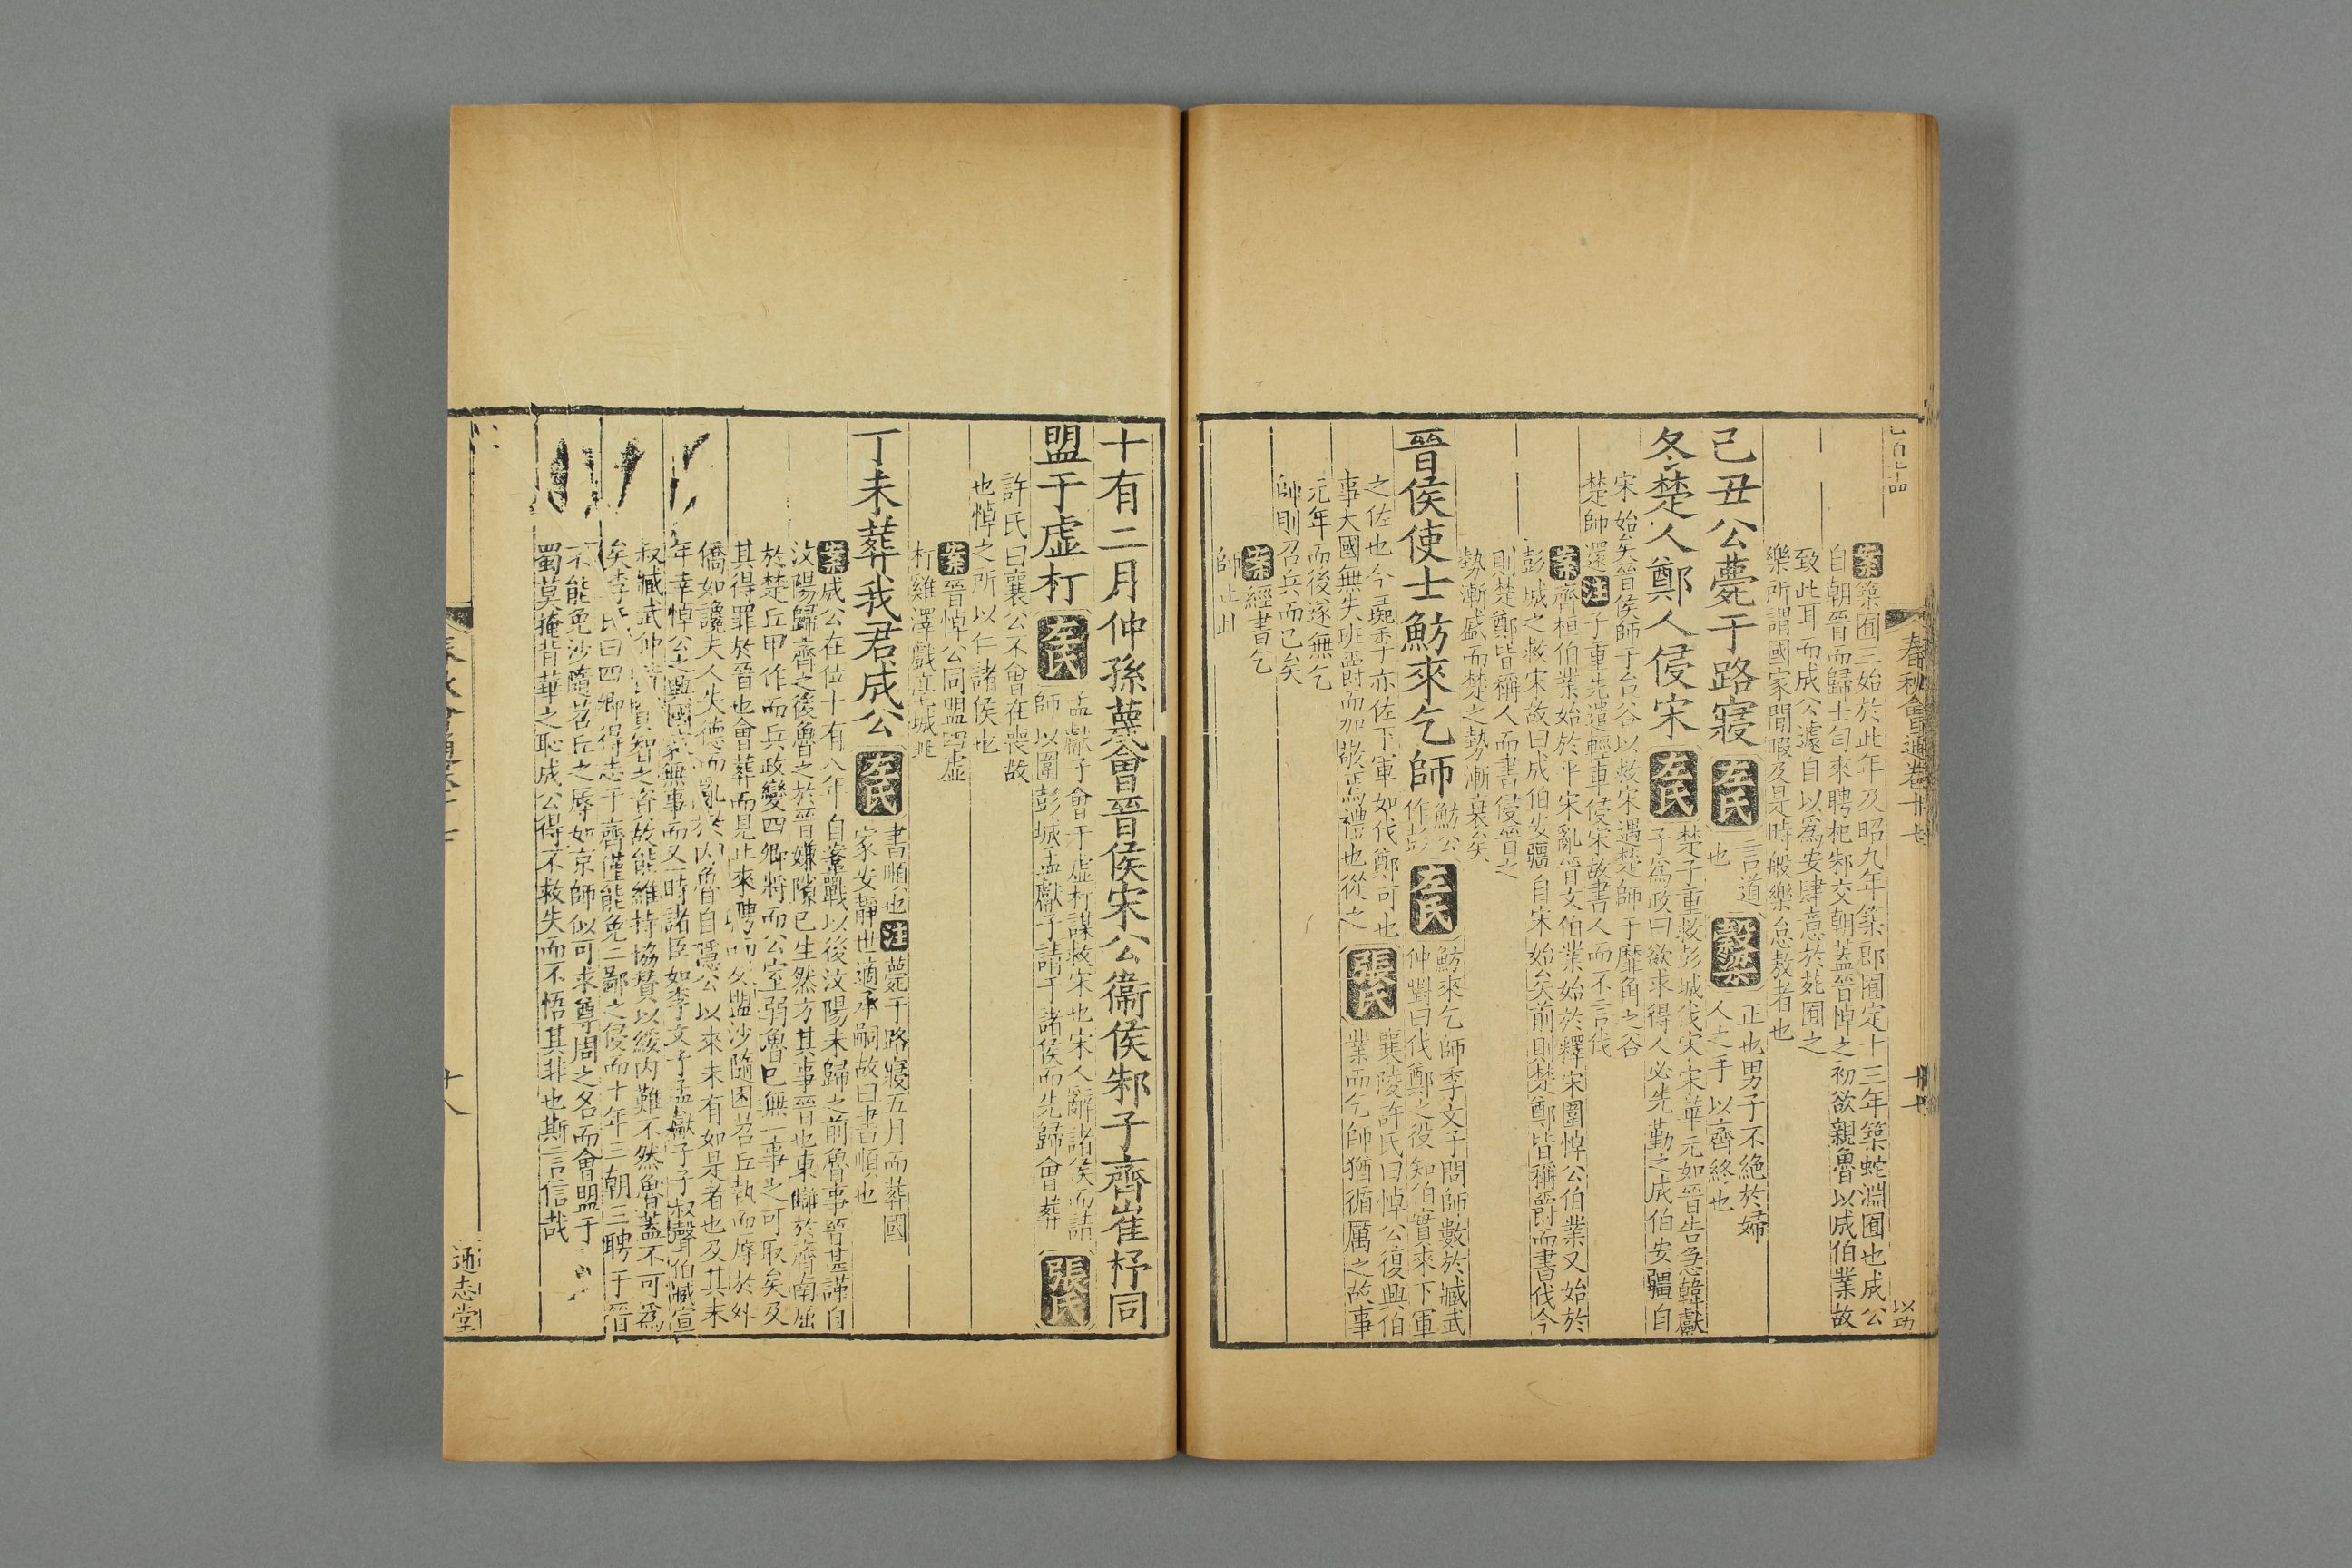 春秋會通卷十七
十七
案築囿三始於此年及昭九年築郎囿定十三年築蛇淵囿也成公
自朝晉而歸士匄來聘杞邾交朝蓋晉悼之初欲親魯以成伯業故
致此耳而成公遽自以為安肆意於苑囿之
樂所謂國家閒暇及是時般樂怠敖者也
己丑公薨于路寢 左氏 言道也 榖梁 正也男子不絕於婦人之手以齊終也
冬楚人鄭人侵宋 左氏 楚子重救彭城伐宋宋華元如晉告急韓獻
子為政曰欲求得人必先勤之成伯安疆自
宋始矣晉侯師于台谷以救宋遇楚師于靡角之谷
楚師還 注 子重先遣輕車侵宋故書人而不言伐
案齊桓伯業始於平宋亂晉文伯業始於釋宋圍悼公伯業又始於
彭城之救宋故曰成伯安疆自宋始矣前則楚鄭皆稱爵而書伐今
則楚鄭皆稱人而書侵晉之
勢漸盛而楚之勢漸衰矣
晉侯使士魴來乞師 魴公作彭 左氏 魴來乞師季文子問師數於臧武
仲對曰伐鄭之役知伯實來下軍
之佐也今彘季亦佐下軍如伐鄭可也
事大國無失班爵而加敬焉禮也從之 張氏 襄陵許氏曰悼公復興伯
業而乞師猶循厲之故事
元年而後遂無乞
師則召兵而已矣
案經書乞
師止此
十有二月仲孫蔑會晉侯宋公衞侯邾子齊崔杼同
盟于虛朾 左氏 孟獻子會于虛朾謀救宋也宋人辭諸侯而請
師以圍彭城孟獻子請于諸侯而先歸會葬 張氏
許氏曰襄公不會在喪故
也悼之所以仁諸侯也
案晉悼公同盟四虛
朾雞澤戲亳城北
丁未葬我君成公 左氏 書順也 注 薨于路寢五月而葬國
家安靜世適承嗣故曰書順也
案成公在位十有八年自鞌戰以後汶陽未歸之前魯事晉甚謹自
汶陽歸齊之後魯之於晉嫌隙已生然方其事晉也東讎於齊南屈
於楚丘甲作而兵政變四卿將而公室弱魯已無一事之可取矣及
其得罪於晉也會葬而見止來聘而必盟沙隨困苕丘執而辱於外
僑如讒夫人失德而亂於內魯自隱公以來未有如是者也及其末
年幸悼公之興國家無事而又一時諸臣如季文子孟獻子子叔聲伯臧宣
叔臧武仲皆負智之資故能維持協贊以綏內難不然魯蓋不可為
矣李氏曰四卿得志于齊僅能免二鄙之侵而十年三朝三聘于晉
不能免沙隨苕丘之辱如京師似可求尊周之名而會盟于
蜀莫掩背華之恥成公得不救失而不悟其非也斯言信哉
十八
通志堂